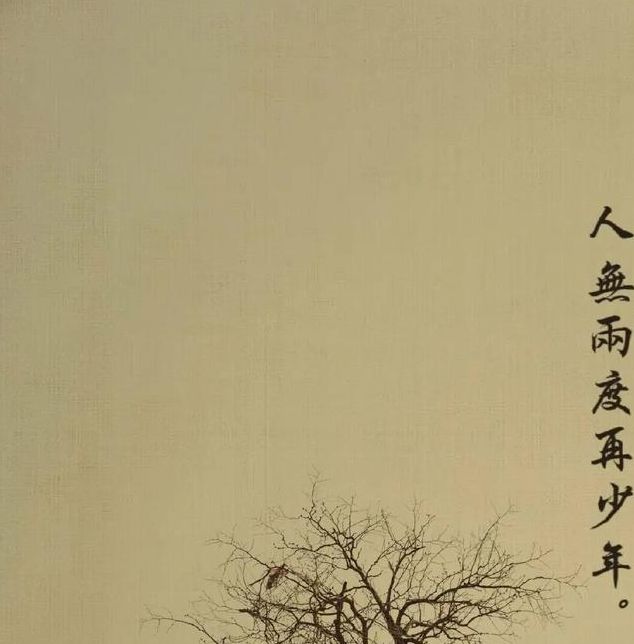 人無兩度再少年。